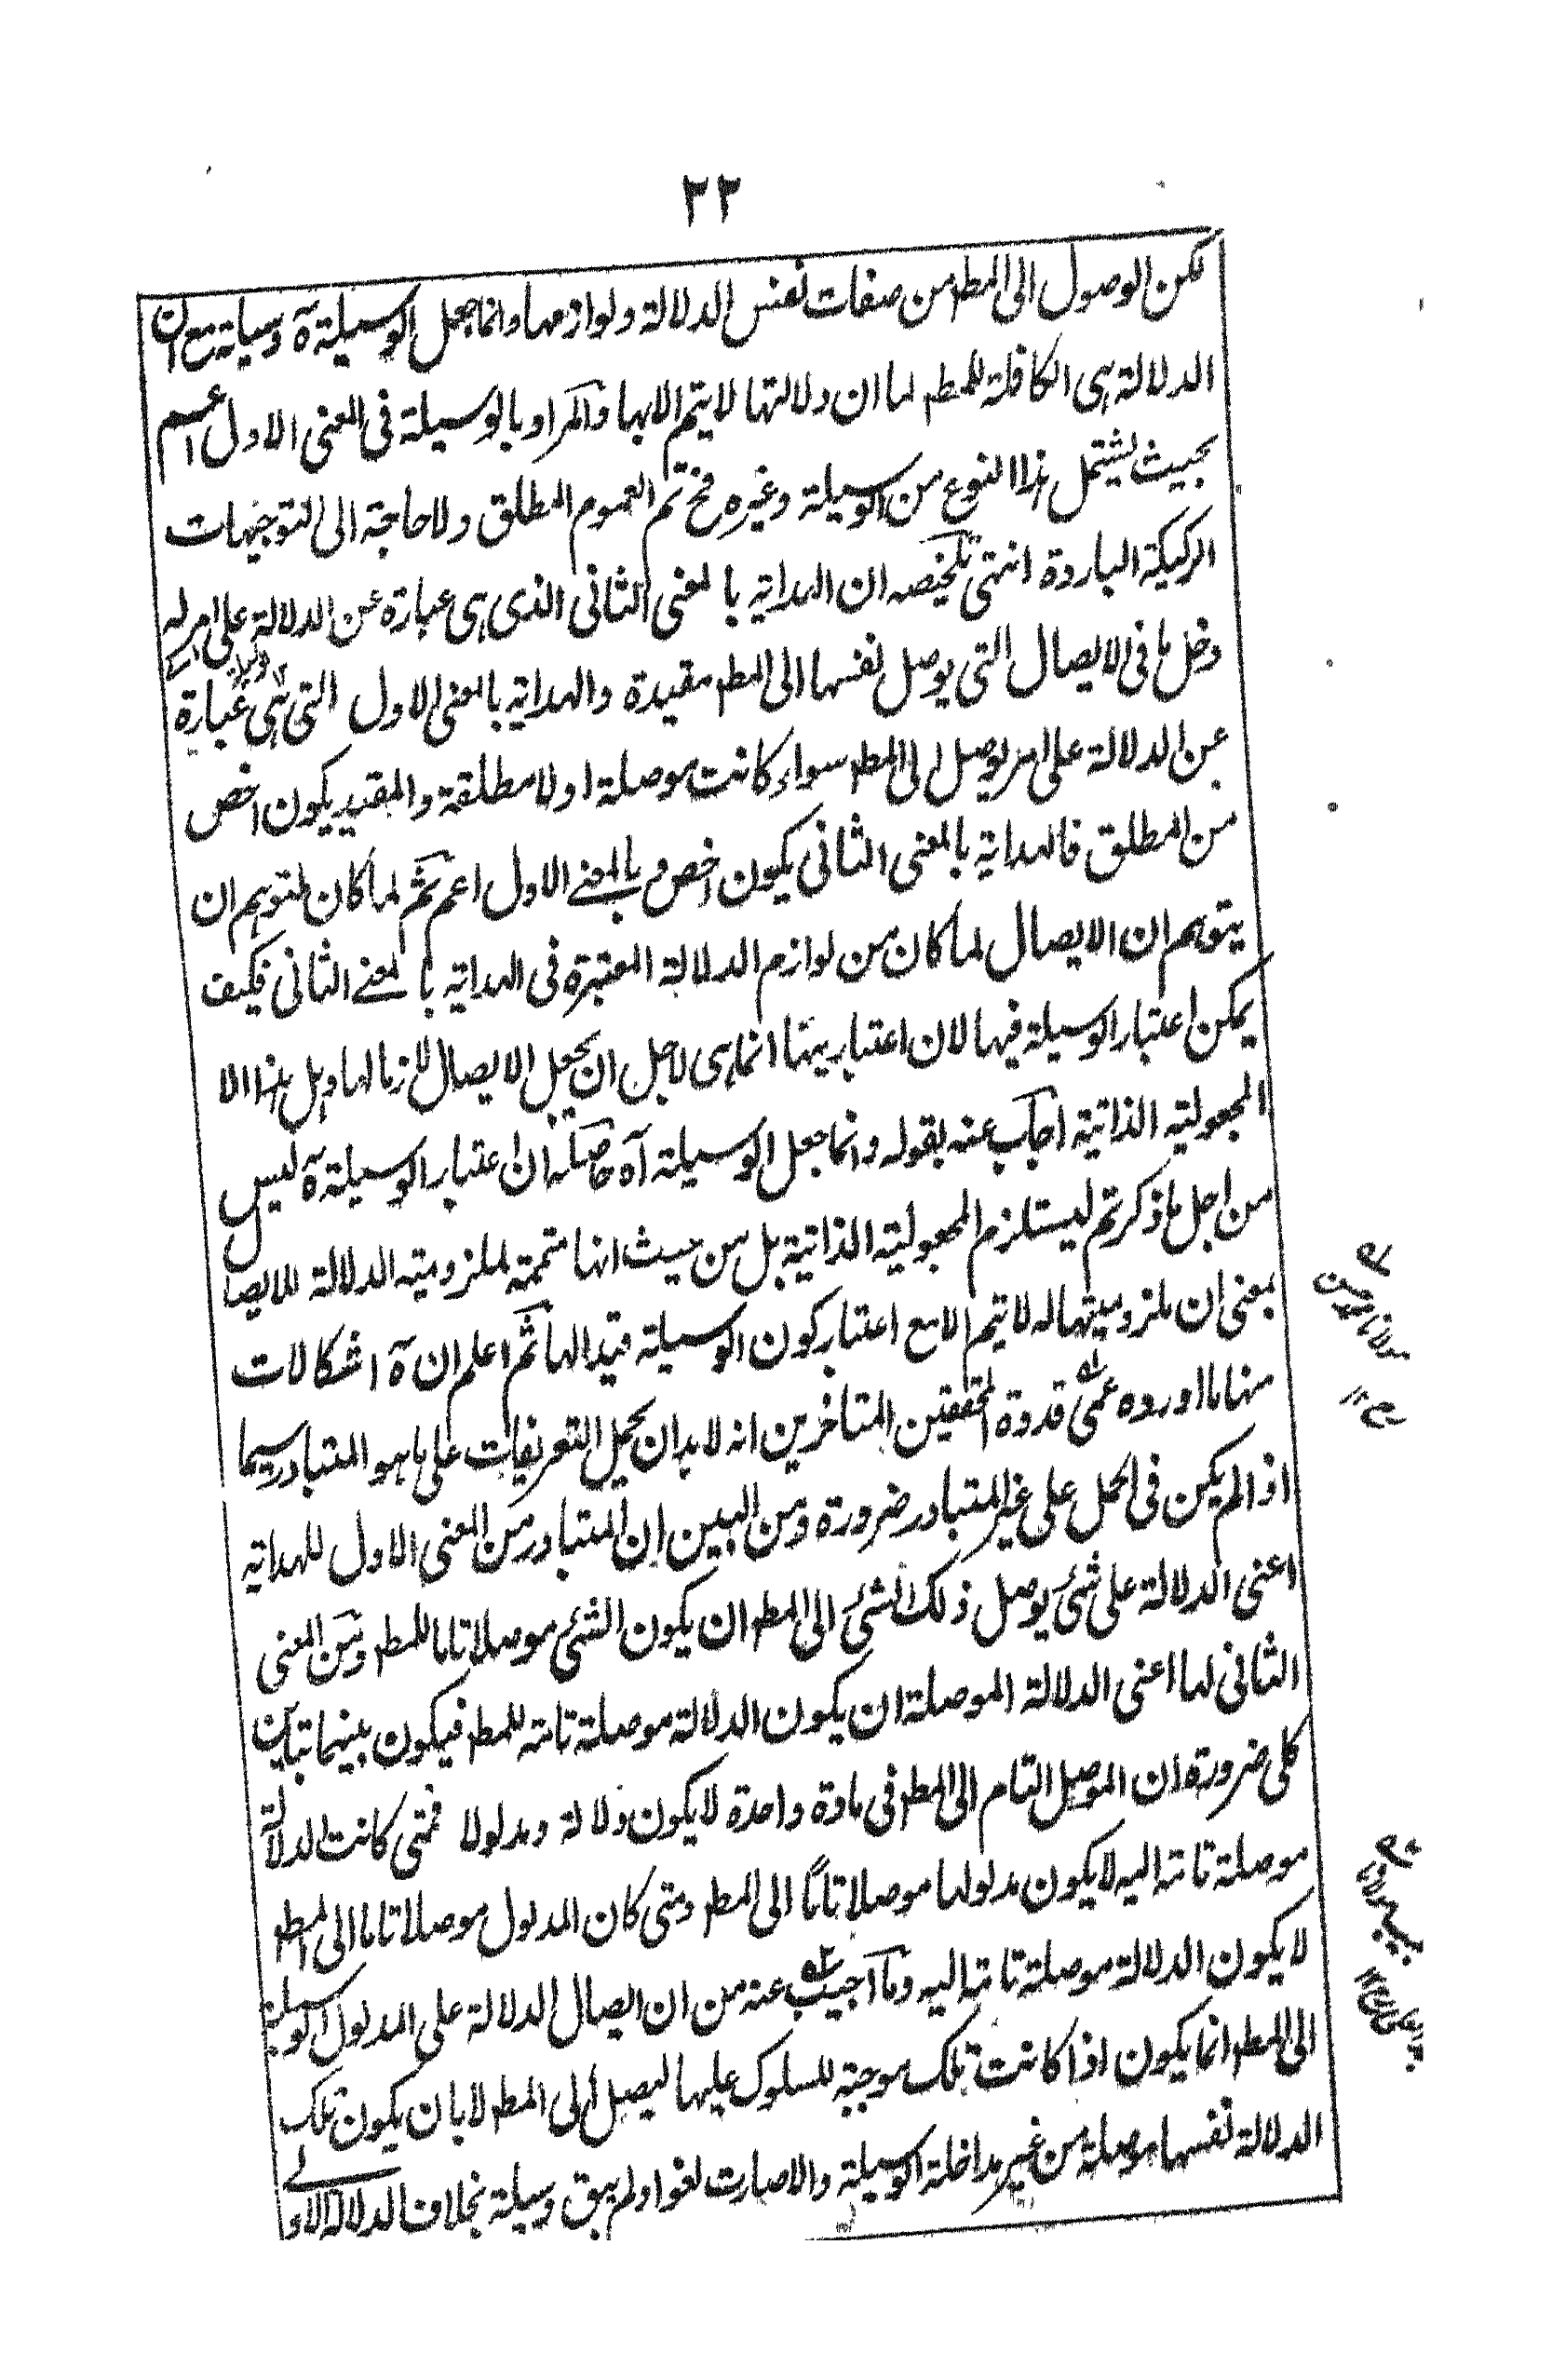 ٢٢
لكن الوصول الى المط من صفات نفس الدلالة ولوازمها وانما جعل الوسيلة آه وسيلة مع ان
الدلالة هى الكافلة للمط لما ان دلالتها لا يتم الا بها والمراد بالوسيلة فى المعنى الاول اعم
بحيث يشتمل هذا النوع من الوسيلة وغيره فح تم العموم المطلق ولا حاجة الى التوجيهات
الركيكة الباردة انتهى تلخيصه ان الهداية بالمعنى الثانى الذى هى عبارة عن الدلالة على امر له
دخل ما فى الايصال التى يوصل نفسها الى المط مقيدة والهداية بالمعنى الاول التى هى عبارة
عن الدلالة على امر يوصل الى المط سواء كانت موصلة او لا مطلقة والمقيد يكون اخص
من المطلق فالهداية بالمعنى الثانى يكون اخص و بالمعنى الاول اعم ثم لما كان لمتوهم ان
يتوهم ان الايصال لما كان من لوازم الدلالة المعتبرة فى الهداية بالمعنى الثانى فكيف
يمكن اعتبار الوسيلة فيها لان اعتباريتها انما هى لاجل ان يجعل الايصال لازما لها وهل هذا الا
المجعولية الذاتية اجاب عنه بقوله وانما جعل الوسيلة آه حاصله ان اعتبار الوسيلة آه ليس
من اجل ما ذكرتم ليستلزم المجعولية الذاتية بل من حيث انها متممة لملزومية الدلالة للايصال
بمعنى ان ملزوميتها له لا يتم الا مع اعتبار كون الوسيلة قيدا لها ثم اعلم ان آه اشكالات
منها ما اورده عمى قدوة المحققين المتاخرين انه لا بد ان يحمل التعريفات على ما هو المتبادر سيما
اذا لم يكن فى الحمل على غير المتبادر ضرورة ومن البين ان المتبادر من المعنى الاول للهداية
اعنى الدلالة على شئ يوصل ذلك الشئ الى المط ان يكون الشئ موصلا تاما للمط ومن المعنى
الثانى لها اعنى الدلالة الموصلة ان يكون الدلالة موصلة تامة للمط فيكون بينهما تباين
كلى ضرورة ان الموصل التام الى المط فى مادة واحدة لا يكون دلالة ومدلولا فمتى كانت الدلالة
موصلة تامة اليه لا يكون مدلولها موصلا تاما الى المط ومتى كان المدلول موصلا تاما الى المط
لا يكون الدلالة موصلة تامة اليه وما اجيب عنه من ان ايصال الدلالة على المدلول الوسيلة
الى المط انما يكون اذا كانت تلك موجبة للسلوك عليها ليصل الى المط لا بان يكون تلك
الدلالة نفسها موصلة من غير مداخلة الوسيلة والا صارت لغوا ولم يبق وسيلة بخلاف الدلالة الاولى